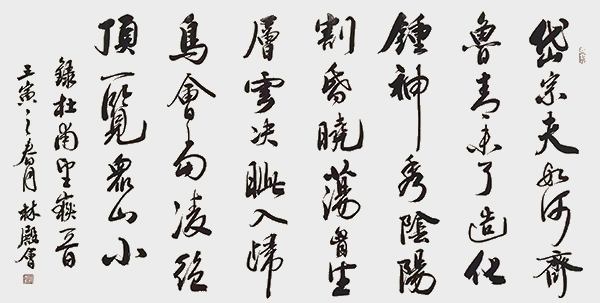 岱宗夫如何齊
魯青未了造化
鍾神秀陰陽
割昏曉蕩胷生
層雲决眦入歸
鳥會當凌絕
頂一覽衆山小
錄杜甫望嶽一首
壬寅之春月林殿會